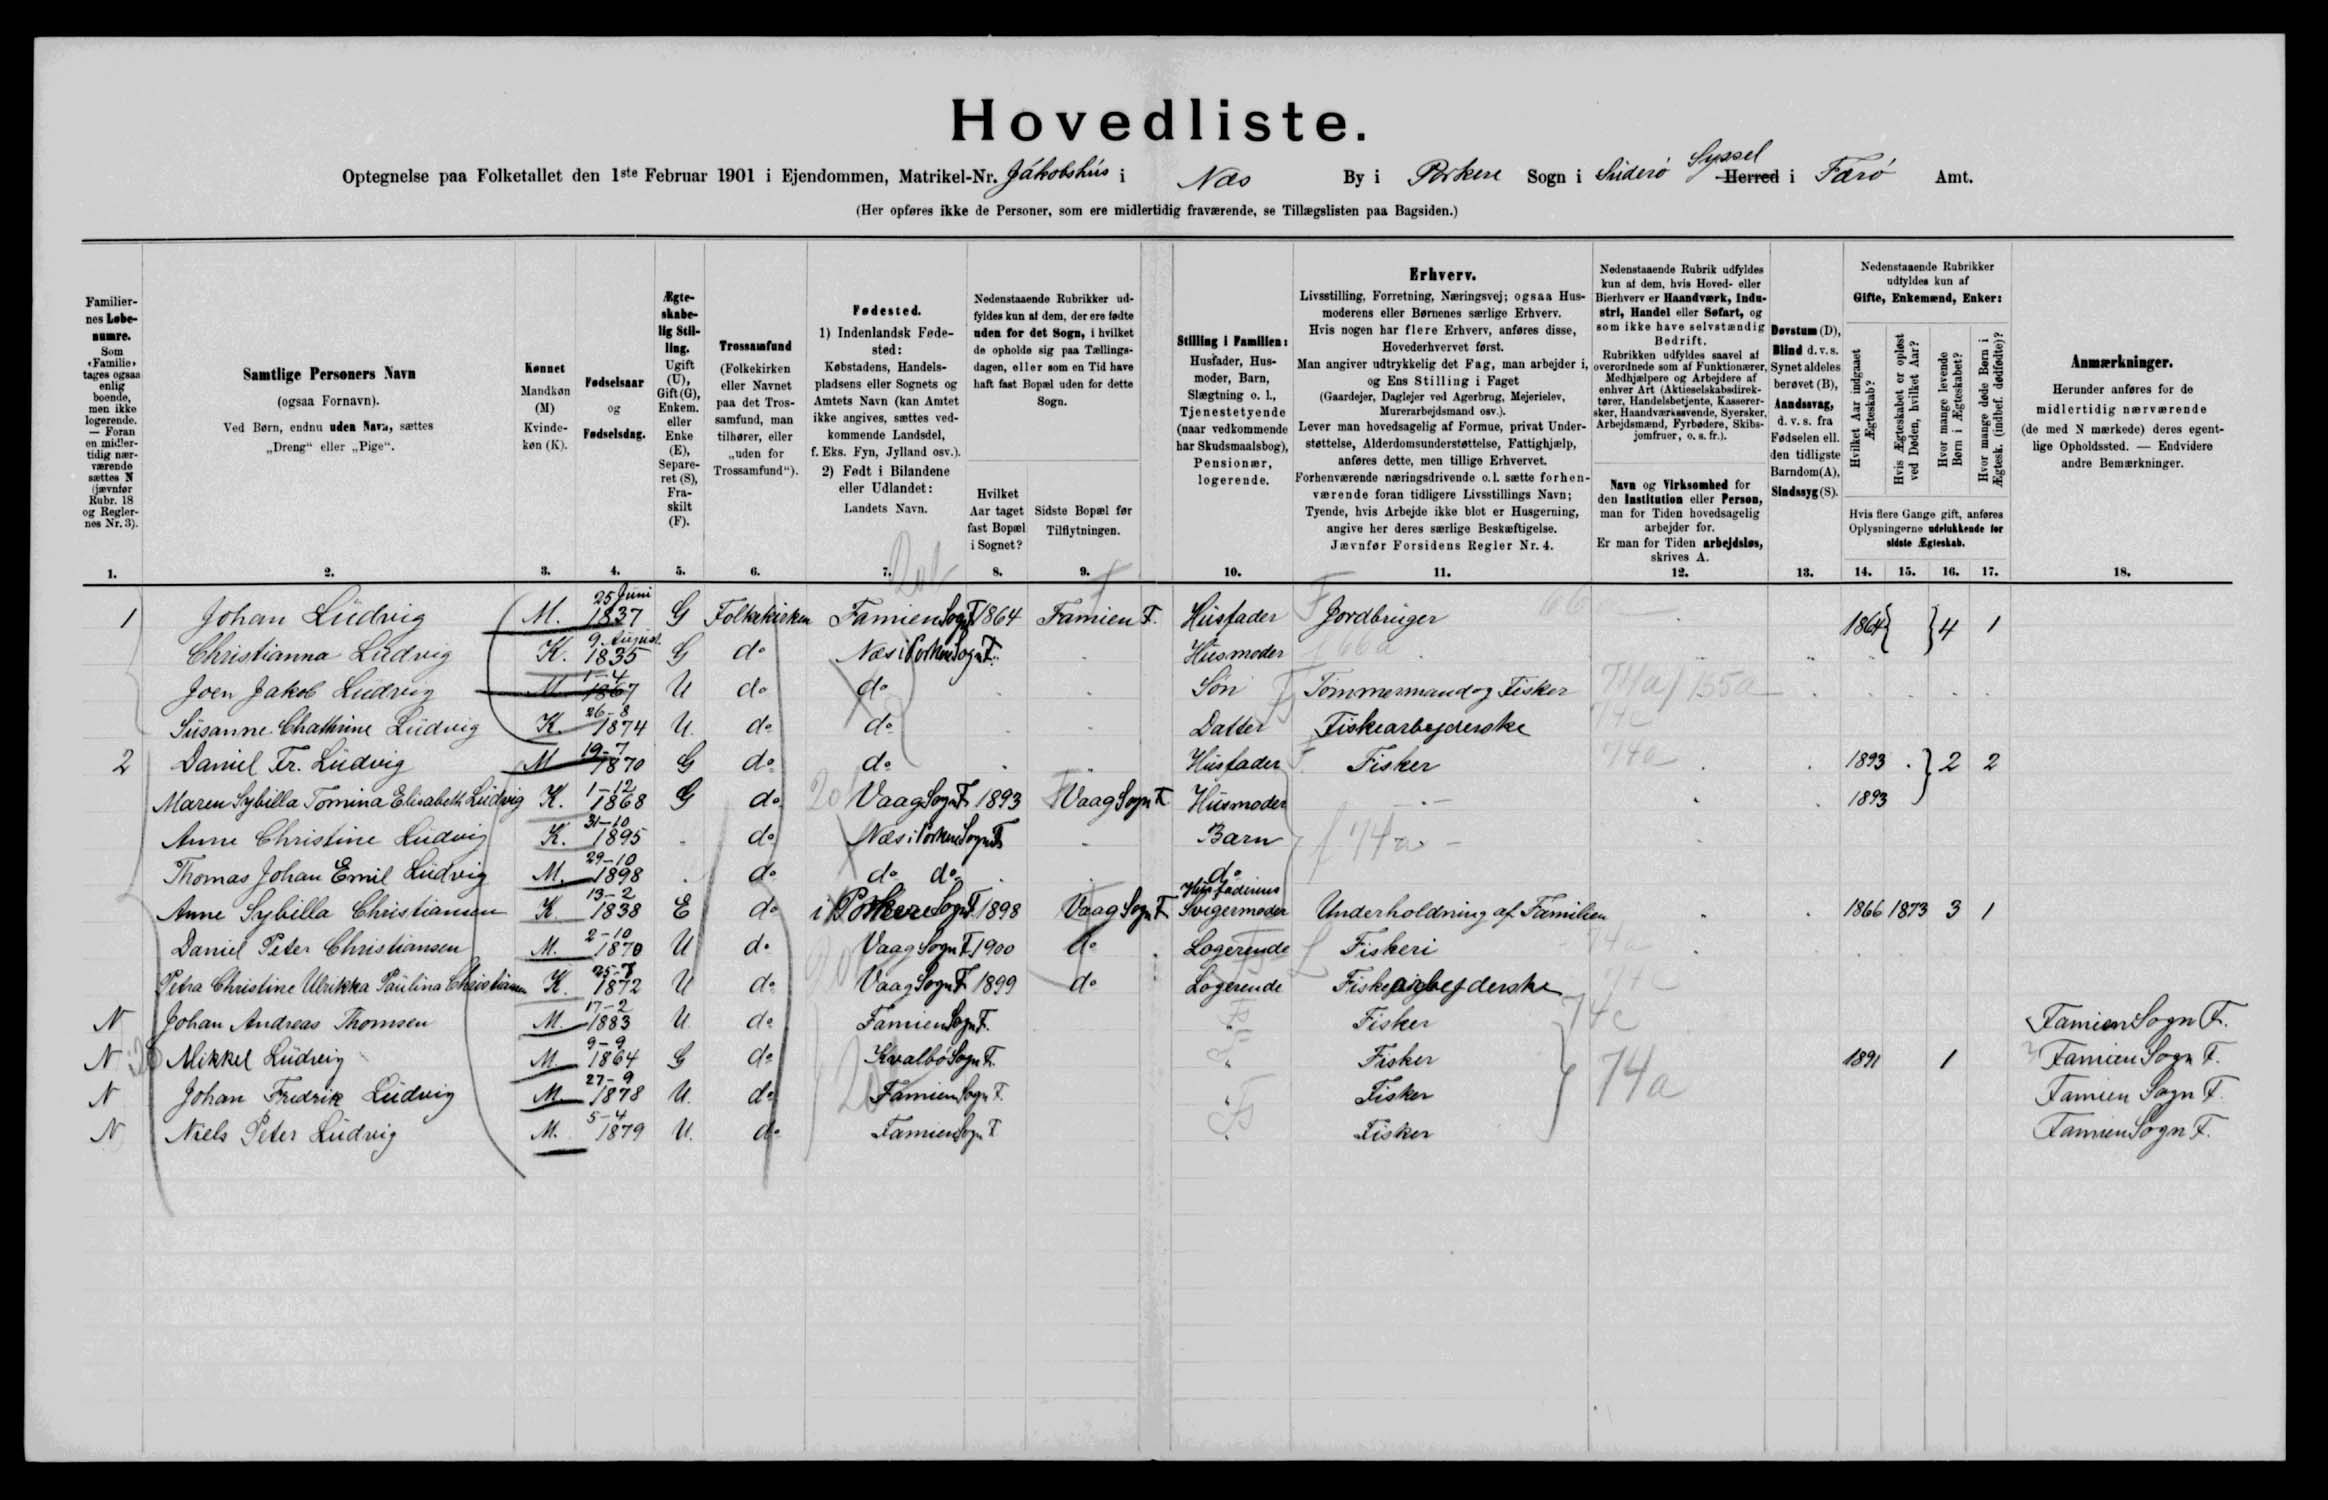 Hovedliste.
Optegnelse paa Folketallet den 1ste Februar 1901 i Ejendommen, Matrikel-Nr. Jákobshús i Næs By i Porkere Sogn i Suderø Syssel Herred i Færø Amt.
(Her opføres ikke de Personer, som ere midlertidig fraværende, se Tillægslisten paa Bagsiden.)
Familiernes Løbenumre. Som «Familie» tages ogsaa enlig boende, men ikke logerende. — Foran en midlertidig nærværende sættes N (jævnfør Rubr. 18 og Reglernes Nr. 3).
Samtlige Personers Navn (ogsaa Fornavn). Ved Børn, endnu uden Navn, sættes „Dreng" eller „Pige".
Kønnet Mandkøn (M) Kvindekøn (K).
Fødselsaar og Fødselsdag.
Ægteskabelig Stilling. Ugift (U), Gift (G), Enkem. eller Enke (E), Separeret (S), Fraskilt (F).
Trossamfund (Folkekirken eller Navnet paa det Trossamfund, man tilhører, eller „uden for Trossamfund").
Fødested. 1) Indenlandsk Fødested: Købstadens, Handelspladsens eller Sognets og Amtets Navn (kan Amtet ikke angives, sættes vedkommende Landsdel, f. Eks. Fyn, Jylland osv.). 2) Født i Bilandene eller Udlandet: Landets Navn.
Nedenstaaende Rubrikker udfyldes kun af dem, der ere fødte uden for det Sogn, i hvilket de opholde sig paa Tællingsdagen, eller som en Tid have haft fast Bopæl uden for dette Sogn.
Hvilket Aar taget fast Bopæl i Sognet?
Sidste Bopæl før Tilflytningen.
Stilling i Familien: Husfader, Husmoder, Barn, Slægtning o. l., Tjenestetyende (naar vedkommende har Skudsmaalsbog), Pensionær, logerende.
Erhverv.
Livsstilling, Forretning, Næringsvej; ogsaa Husmoderens eller Børnenes særlige Erhverv.
Hvis nogen har flere Erhverv, anføres disse, Hovederhvervet først.
Man angiver udtrykkelig det Fag, man arbejder i, og Ens Stilling i Faget (Gaardejer, Daglejer ved Agerbrug, Mejerielev, Murerarbejdsmand osv.).
Lever man hovedsagelig af Formue, privat Understøttelse, Alderdomsunderstøttelse, Fattighjælp, anføres dette, men tillige Erhvervet.
Forhenværende næringsdrivende o. l. sætte forhenværende foran tidligere Livsstillings Navn; Tyende, hvis Arbejde ikke blot er Husgerning, angive her deres særlige Beskæftigelse.
Jævnfør Forsidens Regler Nr. 4.
Nedenstaaende Rubrik udfyldes kun af dem, hvis Hoved- eller Bierhverv er Haandværk, Industri, Handel eller Søfart, og som ikke have selvstændig Bedrift.
Rubrikken udfyldes saavel af overordnede som af Funktionærer, Medhjælpere og Arbejdere af enhver Art (Aktieselskabsdirektører, Handelsbetjente, Kasserersker, Haandværkssvende, Syersker, Arbejdsmænd, Fyrbødere, Skibsjomfruer, o. s. fr.).
Navn og Virksomhed for den Institution eller Person, man for Tiden hovedsagelig arbejder for.
Er man for Tiden arbejdsløs, skrives A.
Døvstum (D), Blind d. v. s. Synet aldeles berøvet (B), Aandssvag, d. v. s. fra Fødselen ell. den tidligste Barndom (A), Sindssyg (S).
Nedenstaaende Rubrikker udfyldes kun af Gifte, Enkemænd, Enker:
Hvilket Aar indgaaet Ægteskab?
Hvis Ægteskabet er opløst ved Døden, hvilket Aar?
Hvor mange levende Børn i Ægteskabet?
Hvor mange døde Børn i Ægtesk. (indbef. dødfødte)?
Hvis flere Gange gift, anføres Oplysningerne udelukkende for sidste Ægteskab.
Anmærkninger. Herunder anføres for de midlertidig nærværende (de med N mærkede) deres egentlige Opholdssted. — Endvidere andre Bemærkninger.
1. 2. 3. 4. 5. 6. 7. 8. 9. 10. 11. 12. 13. 14. 15. 16. 17. 18.
1 Johan Lüdvig M. 25 Juni 1837 G Folkekirken Famien Sogn F. 1864 Famien F. Húsfader Jordbruger 66 1864 4 1
Christianna Lüdvig K. 9. August 1835 G do Næs i Porkere Sogn F. Húsmoder 66a
Joen Jakob Lüdvig M 1-4 1867 U do do Søn Tømmermand og Fisker 74a) 155a
Súsanne Chathrine Lüdvig K. 26-8 1874 U. do do Datter Fiskearbejderske 74c
2 Daniel Fr. Lüdvig M 19-7 1870 G do do Húsfader Fisker 74a 1893 2 2
Maren Sybilla Tomina Elisabeth Lüdvig K. 1-12 1868 G do Vaag Sogn F. 1893 Vaag Sogn F. Húsmoder 1893
Anne Christine Lüdvig K. 31-10 1895 do Næs i Porkere Sogn F. Barn 74a
Thomas Johan Emil Lüdvig M. 29-10 1898 do do do do
Anne Sybilla Christiansen K 13-2 1838 E do i Porkere Sogn F. 1898 Vaag Sogn F. Húsfaderens Svigermoder Underholdning af Familien 1866 1873 3 1
Daniel Peter Christiansen M. 2-10 1870 U do Vaag Sogn F. 1900 do Logerende Fiskeri
Petra Christine Ulrikka Paulina Christiansen K. 25-7 1872 U do Vaag Sogn F. 1899 do Logerende Fiskearbejderske 74c
N Johan Andreas Thomsen M. 17-2 1883 U. do Famien Sogn F. " Fisker 74c Famien Sogn F.
N Mikkel Lüdvig M. 9-9 1864 G do Kvalbø Sogn F. " Fisker 74a 1891 1 Famien Sogn F.
N Johan Fredrik Lüdvig M. 27-9 1878 U. do Famien Sogn F. " Fisker Famien Sogn F.
N Niels Peter Lüdvig M. 5-4 1879 U. do Famien Sogn F " Fisker Famien Sogn F.